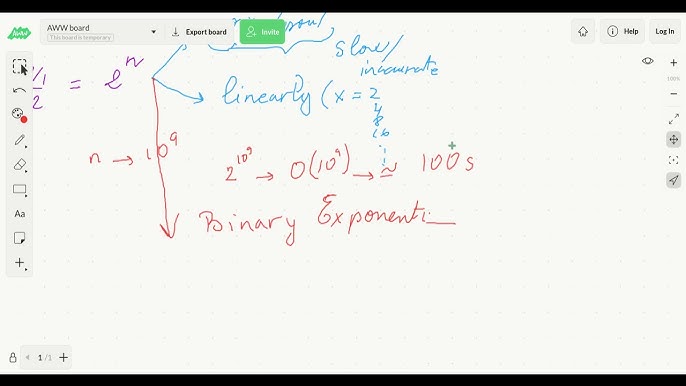 AWW board
This board is temporary
Export board
Invite
Help
Log In
100%
slow/
inaccurate
1/1
2
= 2^n
linearly (x = 2
4
8
16
n → 10^9
2^10^9 → O(10^9) → ≈ 100 s
Binary Exponenti
Aa
1 /1